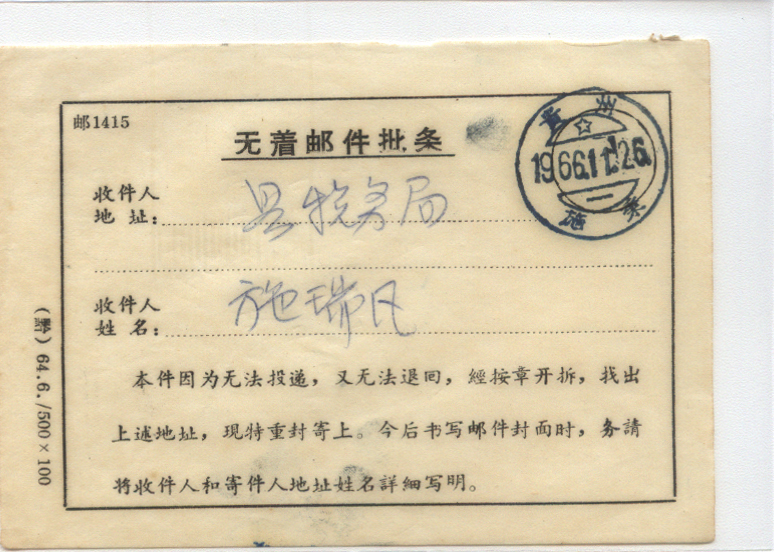 邮1415
无着邮件批条
收件人
地址：县税务局
收件人
姓名：施瑞凡
本件因为无法投递，又无法退回，經按章开拆，找出
上述地址，现特重封寄上。今后书写邮件封面时，务請
将收件人和寄件人地址姓名詳細写明。
(黔) 64.6./500×100
贵州
1966.11.26.
施秉